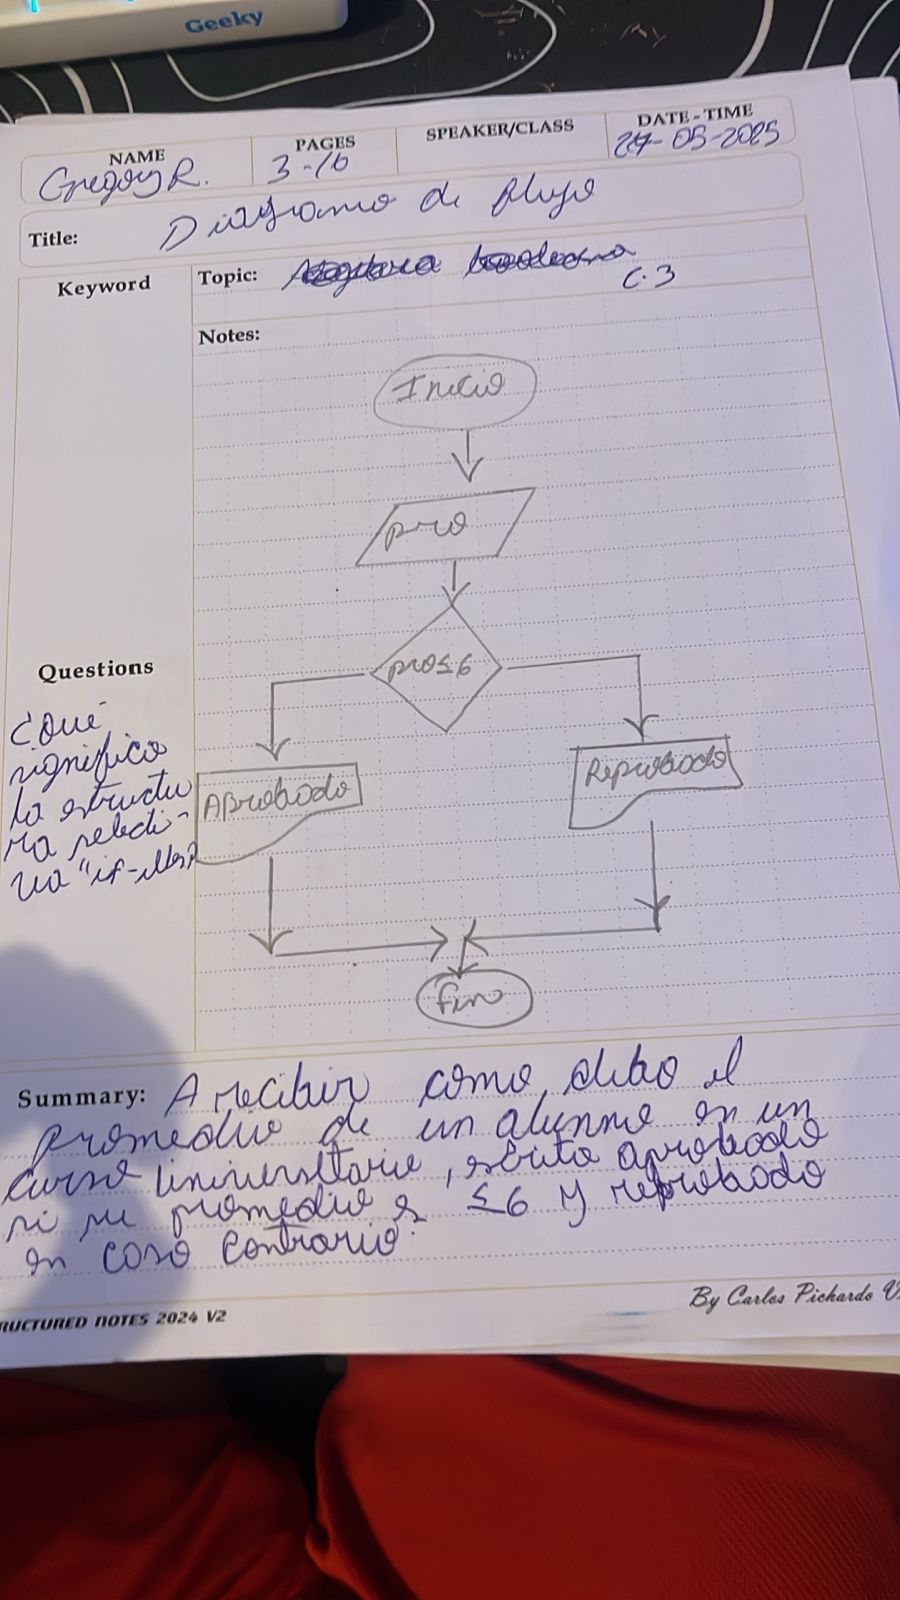 Geeky
NAME
Gregory R.
PAGES
3-16
SPEAKER/CLASS
DATE - TIME
24-05-2025
Title: Diagrama de flujo
Keyword
Topic:
C.3
Notes:
Inicio
pro
pro≤6
Aprobado
Reprobado
fin
Questions
¿Qué
significa
la estructu
ra selecti-
va "if-else"?
Summary: A recibir como dato el
promedio de un alumno en un
curso universitario, escriba aprobado
si su promedio es ≤6 y reprobado
en caso contrario.
RUCTURED NOTES 2024 V2
By Carlos Pichardo V